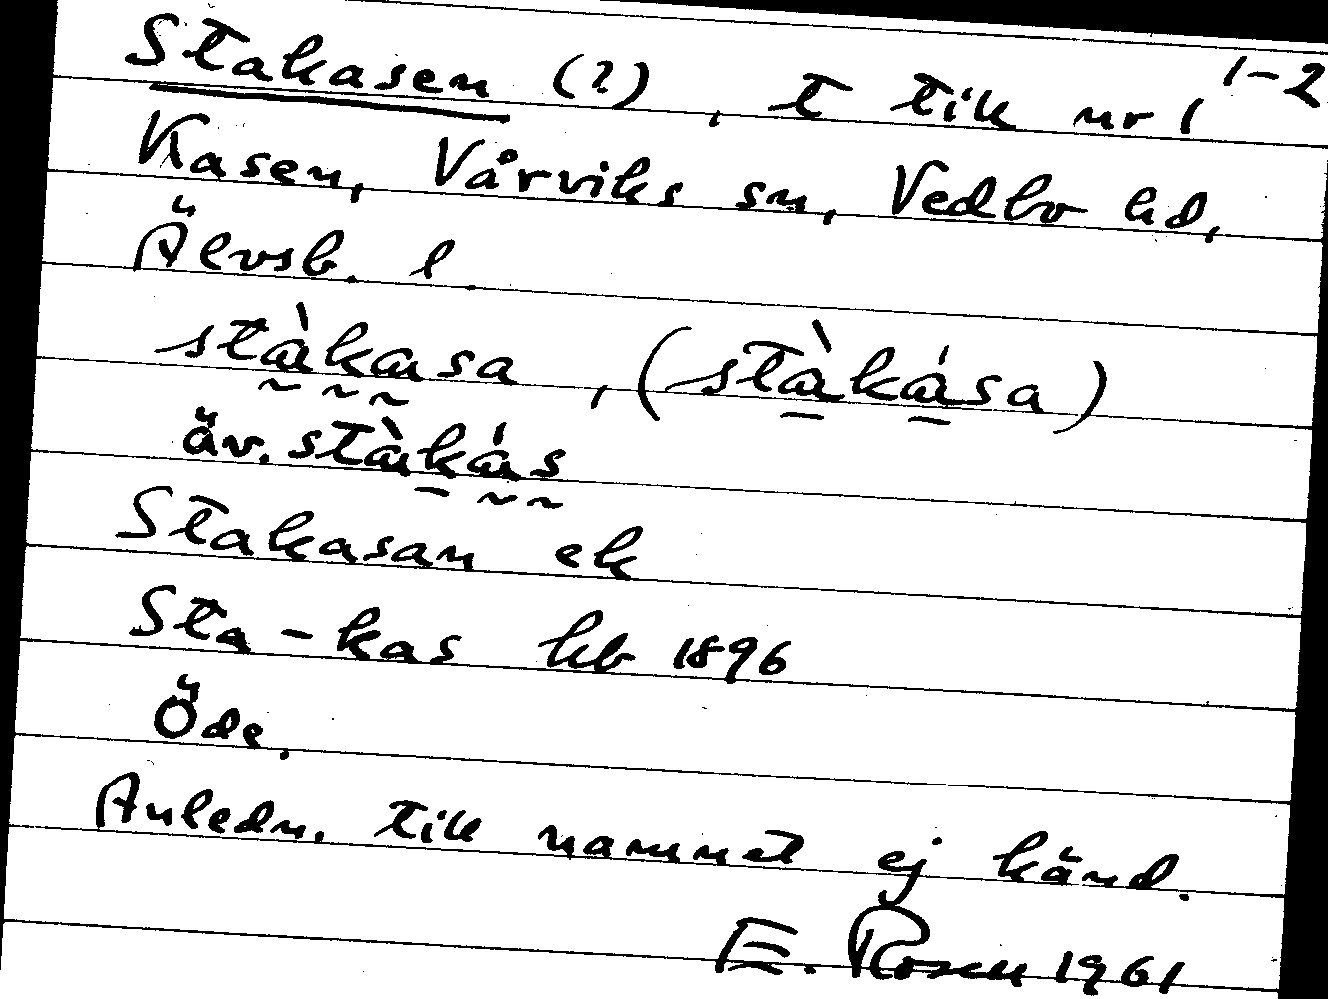 Stakasen (?), t till nr 1 1-2
Kasen, Vårviks sn, Vedbo hd,
Älvsb. l
stàkasa, (stàkása)
äv. stàkás
Stakasan ek
Sta-kas hb 1896
Öde.
Anledn. till namnet ej känd.
E. Rosen 1961